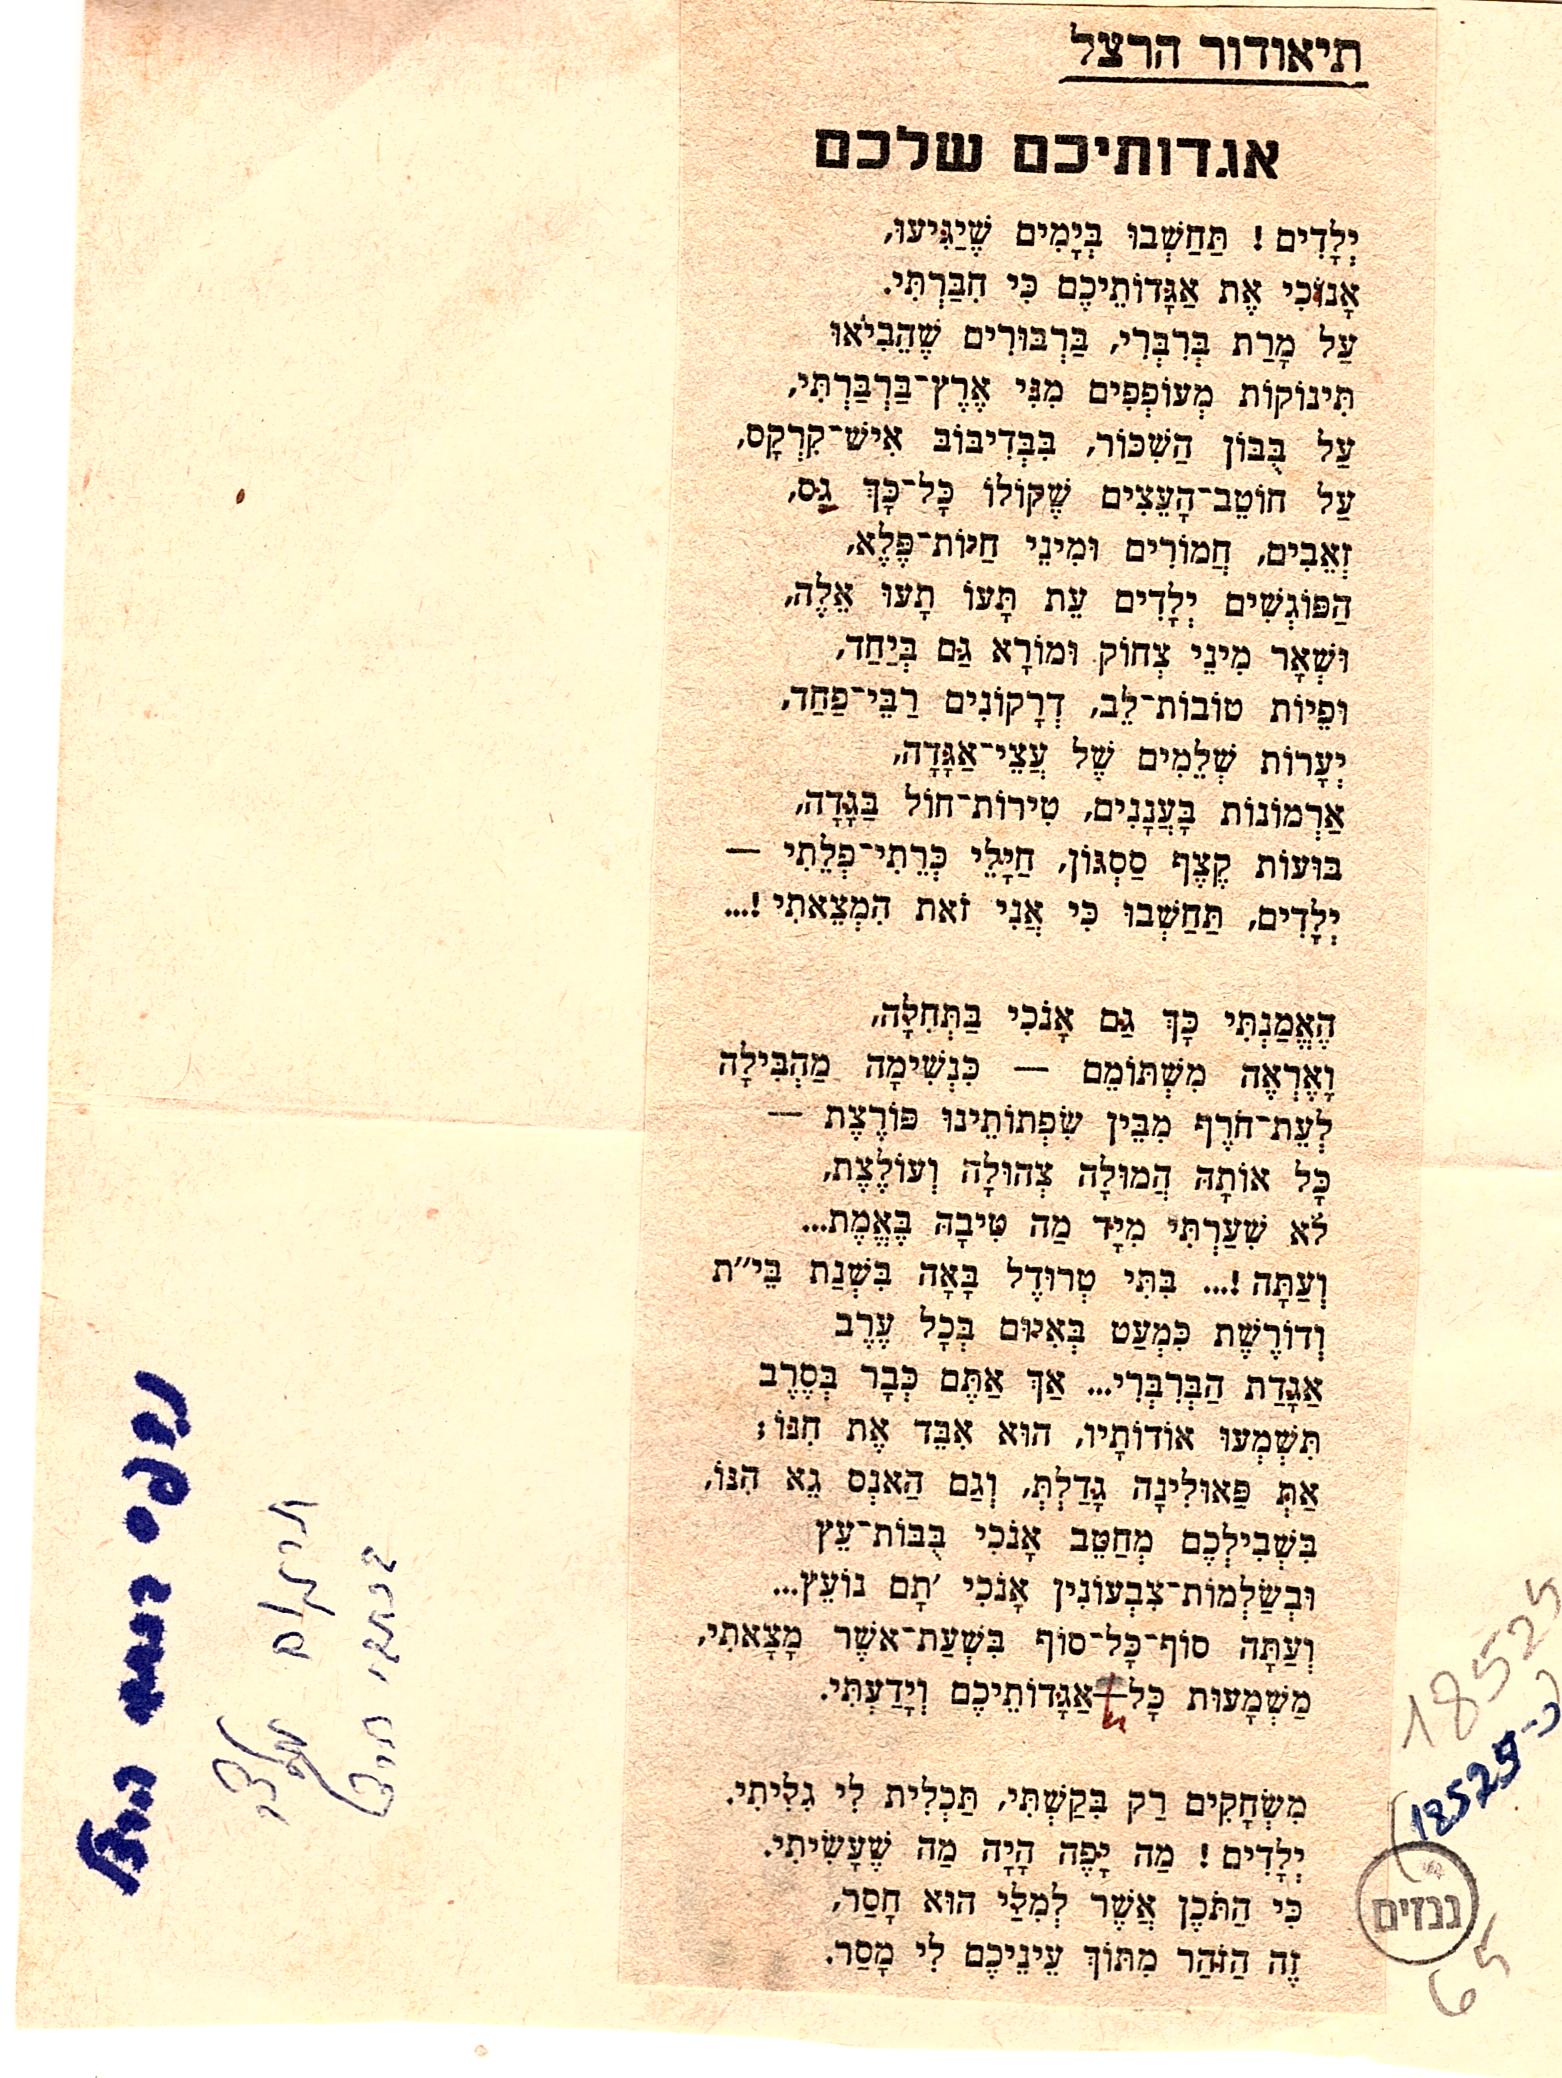 תיאודור הרצל
אגדותיכם שלכם
יְלָדִים! תַּחַשְׁבוּ בְּיָמִים שֶׁיַגִּיעוּ,
אָנוֹכִי אֶת אַגָּדוֹתֵיכֶם כִּי חִבַּרְתִּי.
עַל מָרַת בְּרִבְּרִי, בַּרְבּוּרִים שֶׁהֵבִיאוּ
תִּינוֹקוֹת מְעוֹפְפִים מִנִּי אֶרֶץ־בַּרְבַּרְתִּי,
עַל בֻּבּוֹן הַשִּׁכּוֹר, בִּבְּדִיבּוֹב אִישׁ־קִרְקָס,
עַל חוֹטֵב־הָעֵצִים שֶׁקּוֹלוֹ כָּל־כָּךְ גַּס,
זְאֵבִים, חֲמוֹרִים וּמִינֵי חַיּוֹת־פֶּלֶא,
הַפּוֹגְשִׁים יְלָדִים עֵת תָּעוֹ תָעוּ אֵלֶּה,
וּשְׁאָר מִינֵי צְחוֹק וּמוֹרָא גַּם בְּיַחַד,
וּפֵיוֹת טוֹבוֹת־לֵב, דְּרָקוֹנִים רַבֵּי־פַחַד,
יְעָרוֹת שְׁלֵמִים שֶׁל עֲצֵי־אַגָּדָה,
אַרְמוֹנוֹת בָּעֲנָנִים, טִירוֹת־חוֹל בַּגָּדָה,
בּוּעוֹת קֶצֶף סַסְגּוֹן, חַיָּלֵי כְּרֵתִי־פְלֵתִי —
יְלָדִים, תַּחַשְׁבוּ כִּי אֲנִי זֹאת הִמְצֵאתִי!...
הֶאֱמַנְתִּי כָּךְ גַּם אָנֹכִי בַּתְּחִלָּה,
וָאֶרְאֶה מִשְׁתּוֹמֵם — כִּנְשִׁימָה מַהְבִּילָה
לְעֵת־חֹרֶף מִבֵּין שִׂפְתוֹתֵינוּ פּוֹרֶצֶת —
כָּל אוֹתָהּ הֲמוּלָה צְהוּלָה וְעוֹלֶצֶת,
לֹא שִׁעַרְתִּי מִיָּד מַה טִּיבָהּ בֶּאֱמֶת...
וְעַתָּה!... בִּתִּי טְרוּדֶל בָּאָה בִּשְׁנַת בֵּי״ת
וְדוֹרֶשֶׁת כִּמְעַט בְּאִיּוּם בְּכָל עֶרֶב
אַגָּדַת הַבְּרִבְּרִי... אַךְ אַתֶּם כְּבָר בְּסֶרֶב
תִּשְׁמְעוּ אוֹדוֹתָיו, הוּא אִבֵּד אֶת חִנּוֹ;
אַתְּ פַּאוּלִינָה גָּדַלְתְּ, וְגַם הַאנְס גֵּא הִנּוֹ,
בִּשְׁבִילְכֶם מְחַטֵּב אָנֹכִי בֻּבּוֹת־עֵץ
וּבְשַׂלְמוֹת־צִבְעוֹנִין אָנֹכִי ׳תָם נוֹעֵץ...
וְעַתָּה סוֹף־כָּל־סוֹף בִּשְׁעַת־אֹשֶׁר מָצָאתִי,
מַשְׁמָעוּת כָּל אַגָּדוֹתֵיכֶם וְיָדַעְתִּי.
מִשְׂחָקִים רַק בִּקַּשְׁתִּי, תַּכְלִית לִי גִלִּיתִי.
יְלָדִים! מַה יָּפֶה הָיָה מַה שֶּׁעָשִׂיתִי.
כִּי הַתֹּכֶן אֲשֶׁר לְמִלַּי הוּא חָסַר,
זֶה הַזֹּהַר מִתּוֹךְ עֵינֵיכֶם לִי מָסַר.
18525
כ-18525
גנזים
65